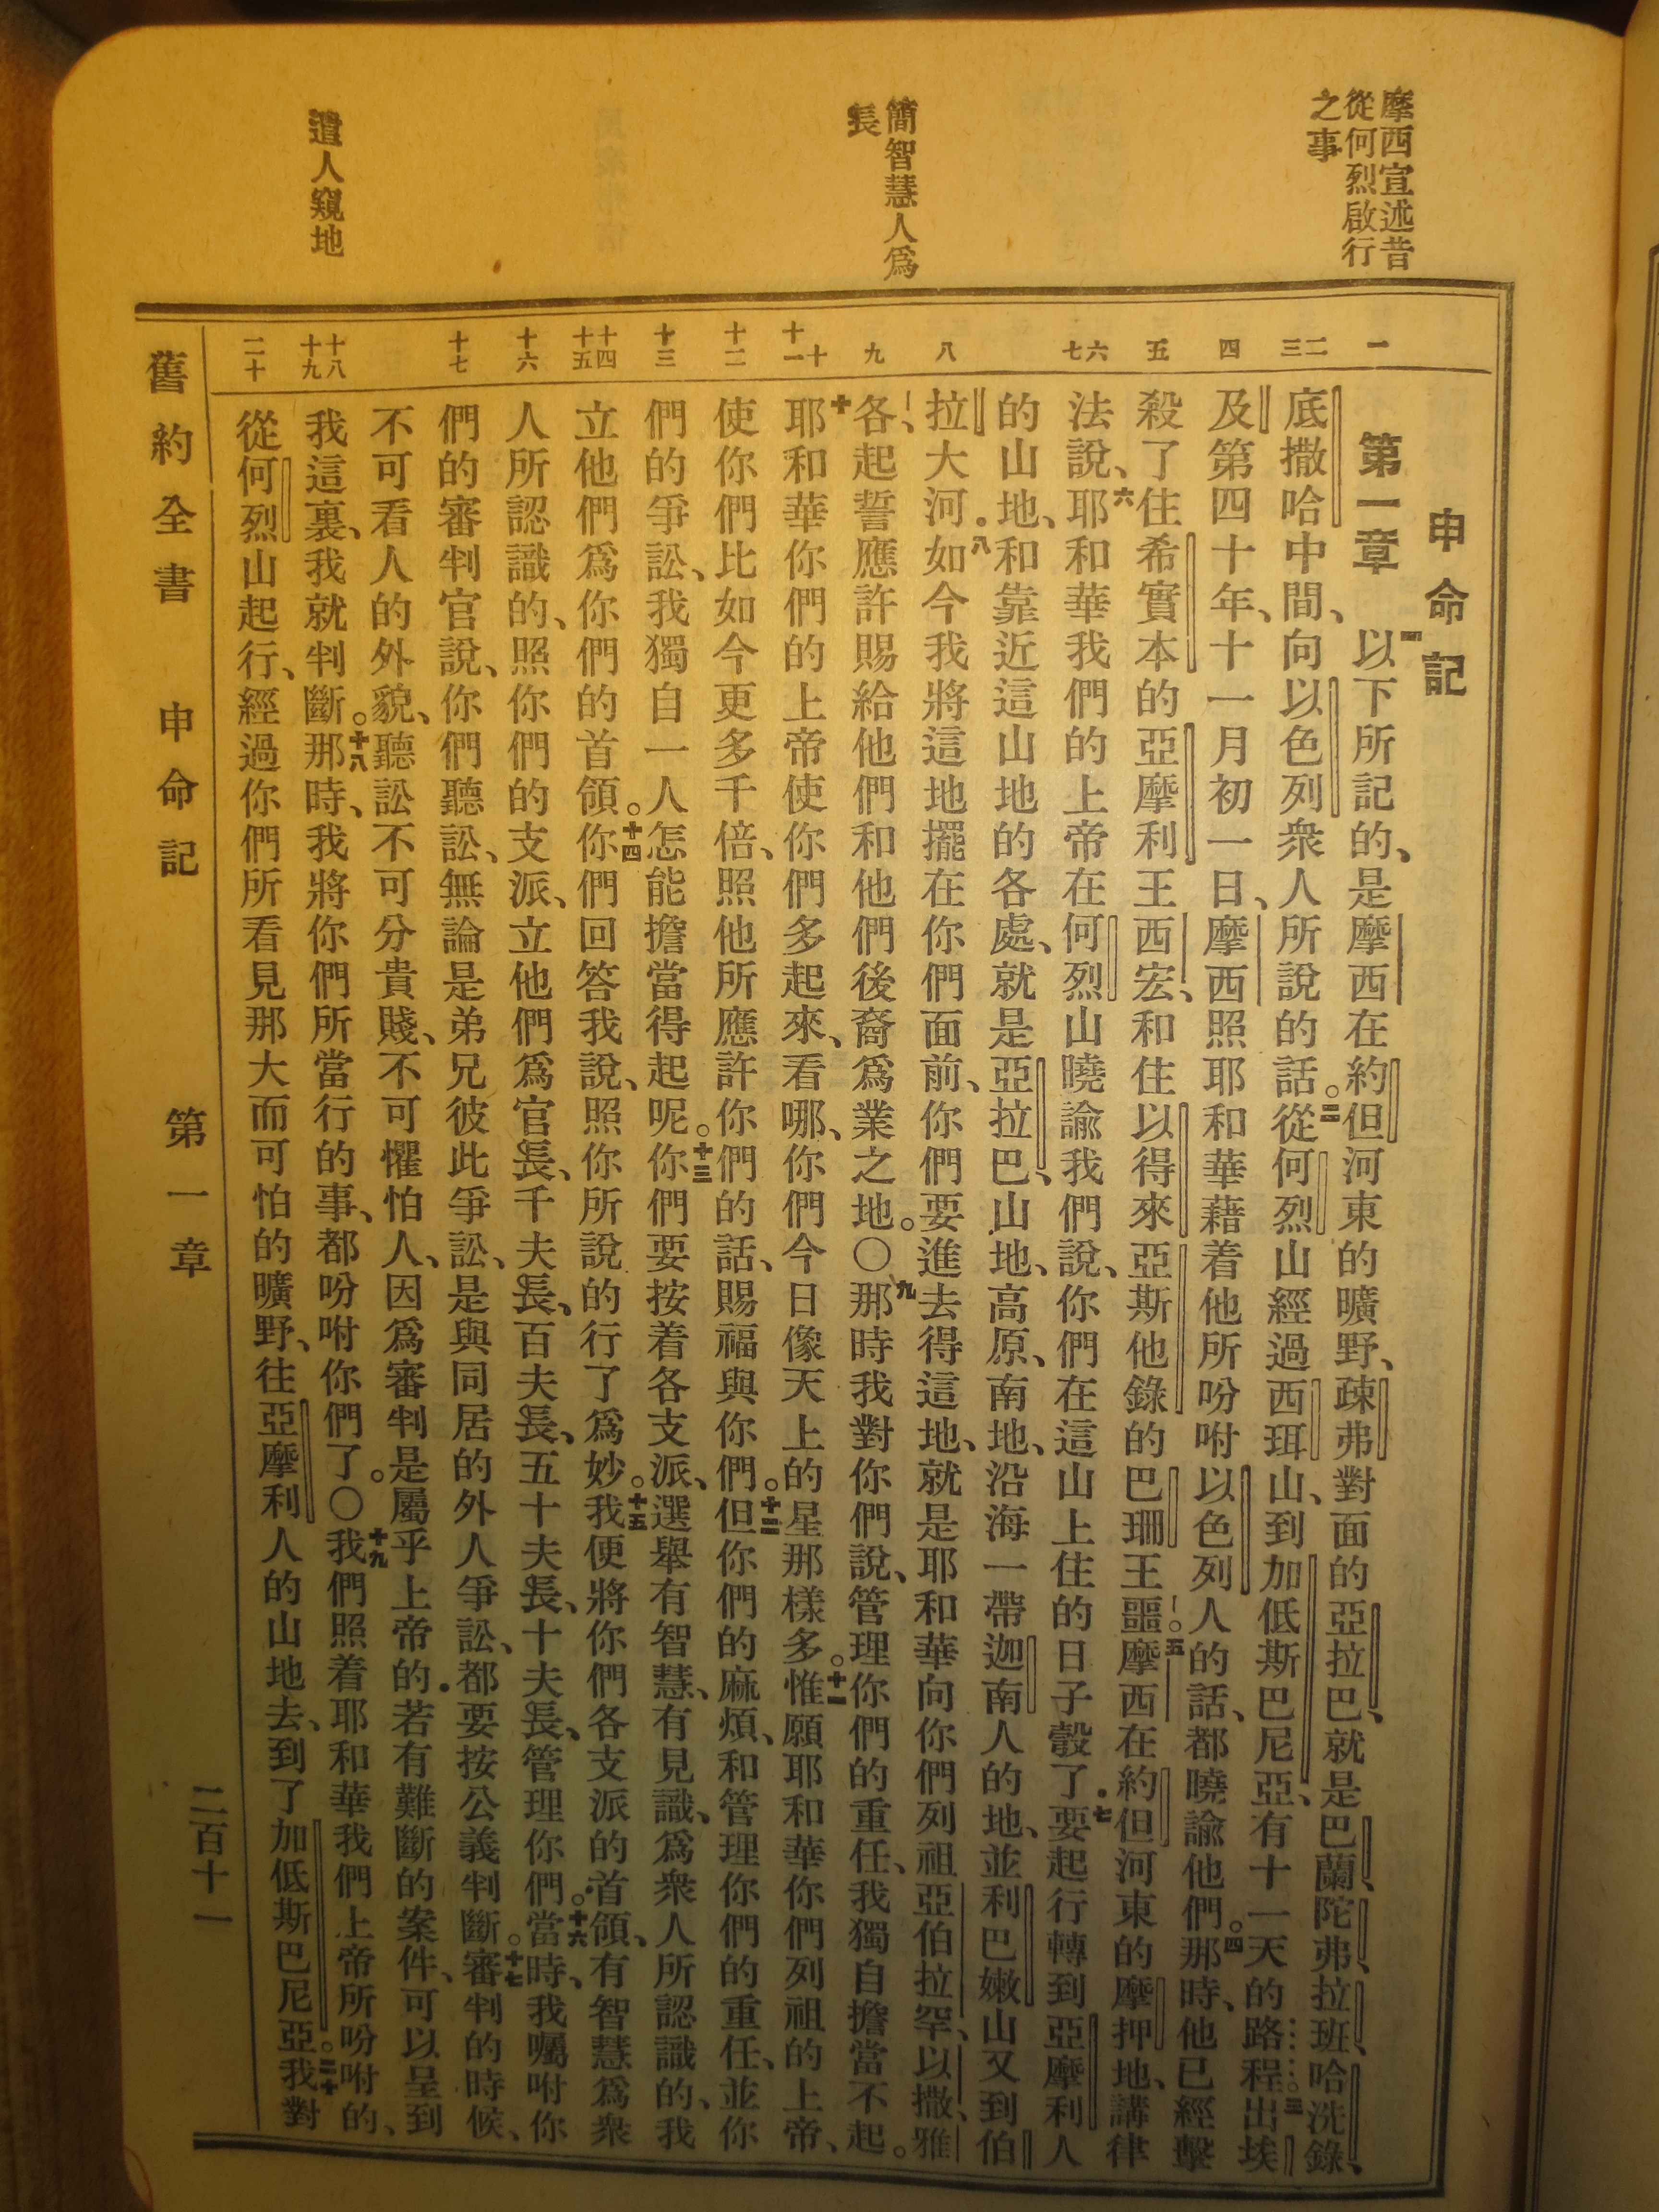 摩西宣述昔
從何烈啟行
之事
簡智慧人爲
長
遣人窺地
一
二
三
四
五
六
七
八
九
十
十一
十二
十三
十四
十五
十六
十七
十八
十九
二十
申命記
第一章 一以下所記的、是摩西在約但河東的曠野、疎弗對面的亞拉巴、就是巴蘭、陀弗、拉班、哈洗錄、
底撒哈中間、向以色列衆人所說的話。二從何烈山經過西珥山、到加低斯巴尼亞、有十一天的路程。三出埃
及第四十年、十一月初一日、摩西照耶和華藉着他所吩咐以色列人的話、都曉諭他們。四那時、他已經擊
殺了住希實本的亞摩利王西宏、和住以得來亞斯他錄的巴珊王噩。五摩西在約但河東的摩押地、講律
法說、六耶和華我們的上帝在何烈山曉諭我們說、你們在這山上住的日子彀了．七要起行轉到亞摩利人
的山地、和靠近這山地的各處、就是亞拉巴、山地、高原、南地、沿海一帶迦南人的地、並利巴嫩山又到伯
拉大河．八如今我將這地擺在你們面前、你們要進去得這地、就是耶和華向你們列祖亞伯拉罕、以撒、雅
各、起誓應許賜給他們和他們後裔爲業之地。〇九那時我對你們說、管理你們的重任、我獨自擔當不起。
十耶和華你們的上帝使你們多起來、看哪、你們今日像天上的星那樣多。十一惟願耶和華你們列祖的上帝、
使你們比如今更多千倍、照他所應許你們的話、賜福與你們。十二但你們的麻煩、和管理你們的重任、並你
們的爭訟、我獨自一人怎能擔當得起呢。十三你們要按着各支派、選舉有智慧、有見識、爲衆人所認識的、我
立他們爲你們的首領。十四你們回答我說、照你所說的行了爲妙。十五我便將你們各支派的首領、有智慧爲衆
人所認識的、照你們的支派、立他們爲官長、千夫長、百夫長、五十夫長、十夫長、管理你們。十六當時、我囑咐你
們的審判官說、你們聽訟、無論是弟兄彼此爭訟、是與同居的外人爭訟、都要按公義判斷。十七審判的時候、
不可看人的外貌、聽訟不可分貴賤、不可懼怕人、因爲審判是屬乎上帝的．若有難斷的案件、可以呈到
我這裏、我就判斷。十八那時、我將你們所當行的事、都吩咐你們了。〇十九我們照着耶和華我們上帝所吩咐的、
從何烈山起行、經過你們所看見那大而可怕的曠野、往亞摩利人的山地去、到了加低斯巴尼亞。二十我對
舊約全書 申命記 第一章 二百十一